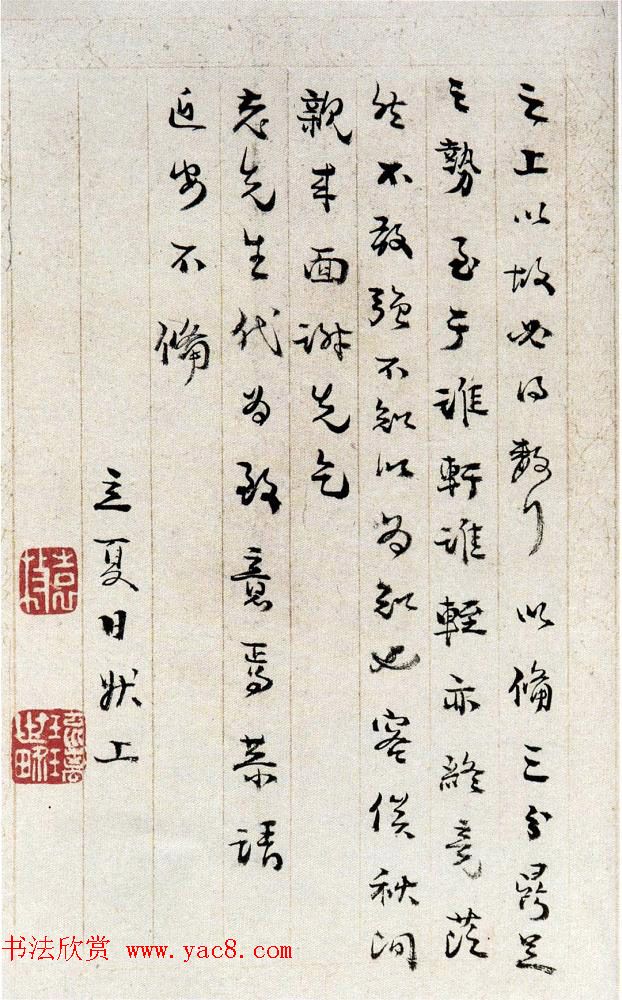 之上以故必得數行以備三分鼎足
之勢至于誰軒誰輊亦終竟茫
然不敢強不知以為知也容俟秋間
親來面謝先乞
老先生代為致意焉恭請
近安不備
立夏日狀上
书法欣赏 www.yac8.com